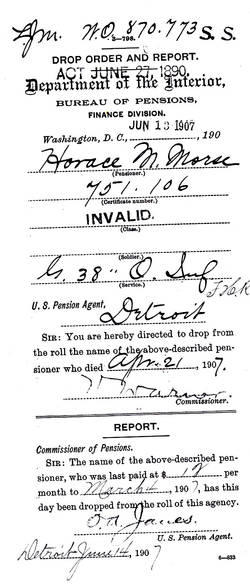 W.O. 870.773 S.S.
3—798.
DROP ORDER AND REPORT.
ACT JUNE 27, 1890.
Department of the Interior,
BUREAU OF PENSIONS,
FINANCE DIVISION.
JUN 13 1907
Washington, D. C., , 190
Horace M. Morse
(Pensioner.)
751.106
(Certificate number.)
INVALID.
(Class.)
(Soldier.)
G. 38" O. Inf
(Service.)
U. S. Pension Agent,
Detroit
SIR: You are hereby directed to drop from
the roll the name of the above-described pen-
sioner who died Apr. 21, 1907.
Warner
Commissioner.
REPORT.
Commissioner of Pensions.
SIR: The name of the above-described pen-
sioner, who was last paid at $ 12
per month to March 4, 1907, has this
day been dropped from the roll of this agency.
O. A. Janes.
U. S. Pension Agent.
Detroit June 14, 1907
6—633